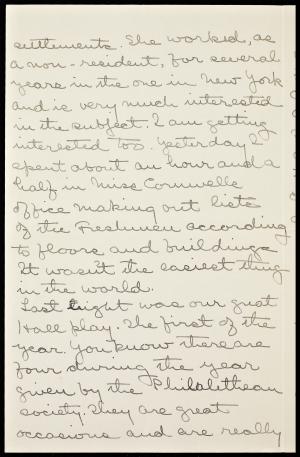 settlements. She worked, as
a non-resident, for several
years in the one in New York
and is very much interested
in the subject. I am getting
interested too. Yesterday I
spent about an hour and a
half in Miss Cornwells
office making out lists
of the Freshmen according
to floors and buildings
It wasn't the easiest thing
in the world.
Last night was our great
Hall play. The first of the
year. You know there are
four during the year
given by the Philalethean
society. They are great
occasions and are really